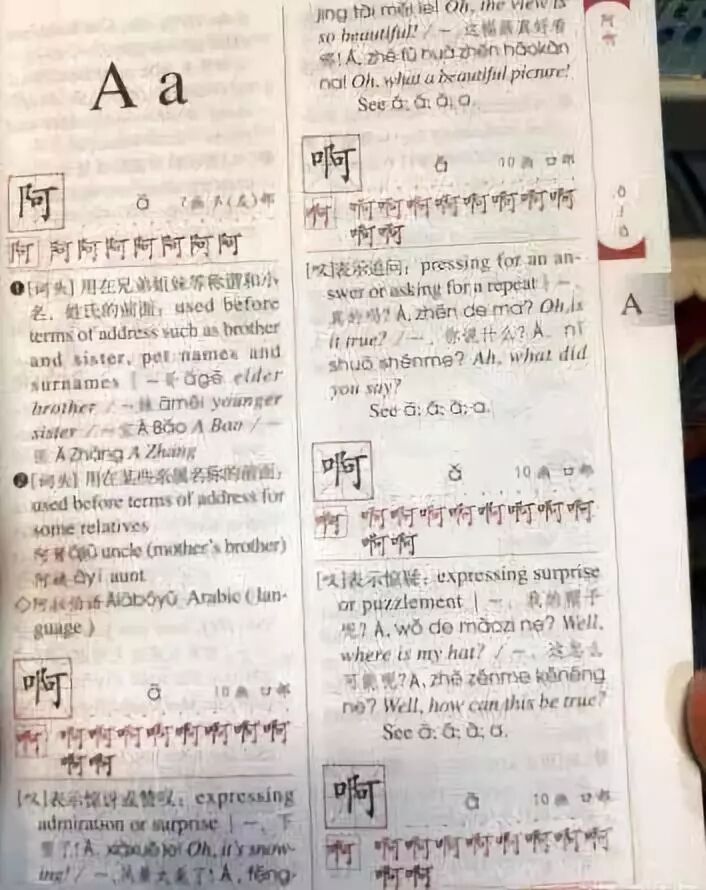 A a
阿 ā 7画 阝(左)部
阿 阿阿阿阿阿阿阿
❶[词头] 用在兄弟姐妹等称谓和小
名、姓氏的前面: used before
terms of address such as brother
and sister, pet names and
surnames | ～哥 āgē elder
brother / ～妹 āmèi younger
sister / ～宝 Ā Bǎo A Bao / ～
张 Ā Zhāng A Zhang
❷[词头] 用在某些亲属名称的前面:
used before terms of address for
some relatives
阿舅 ājiù uncle (mother's brother)
阿姨 āyí aunt
◇阿拉伯语 Ālābóyǔ Arabic (lan-
guage)
啊 ā 10画 口部
啊 啊啊啊啊啊啊啊啊
啊啊
[叹]表示惊讶或赞叹: expressing
admiration or surprise | ～, 下
雪了! Ā, xiàxuě le! Oh, it's snow-
ing! / ～, 风景太美了! Ā, fēng-
jǐng tài měi le! Oh, the view is
so beautiful! / ～, 这幅画真好看
哪! Ā, zhè fú huà zhēn hǎokàn
na! Oh, what a beautiful picture!
See á; ǎ; à; a.
啊 á 10画 口部
啊 啊啊啊啊啊啊啊啊
啊啊
[叹]表示追问: pressing for an an-
swer or asking for a repeat | ～,
真的吗? Á, zhēn de ma? Oh, is
it true? / ～, 你说什么? Á, nǐ
shuō shénme? Ah, what did
you say?
See ā; ǎ; à; a.
啊 ǎ 10画 口部
啊 啊啊啊啊啊啊啊啊
啊啊
[叹]表示惊疑: expressing surprise
or puzzlement | ～, 我的帽子
呢? Ǎ, wǒ de màozi ne? Well,
where is my hat? / ～, 这怎么
可能呢? Ǎ, zhè zěnme kěnéng
ne? Well, how can this be true?
See ā; á; à; a.
啊 à 10画 口部
啊 啊啊啊啊啊啊啊啊
啊啊
阿
啊
A